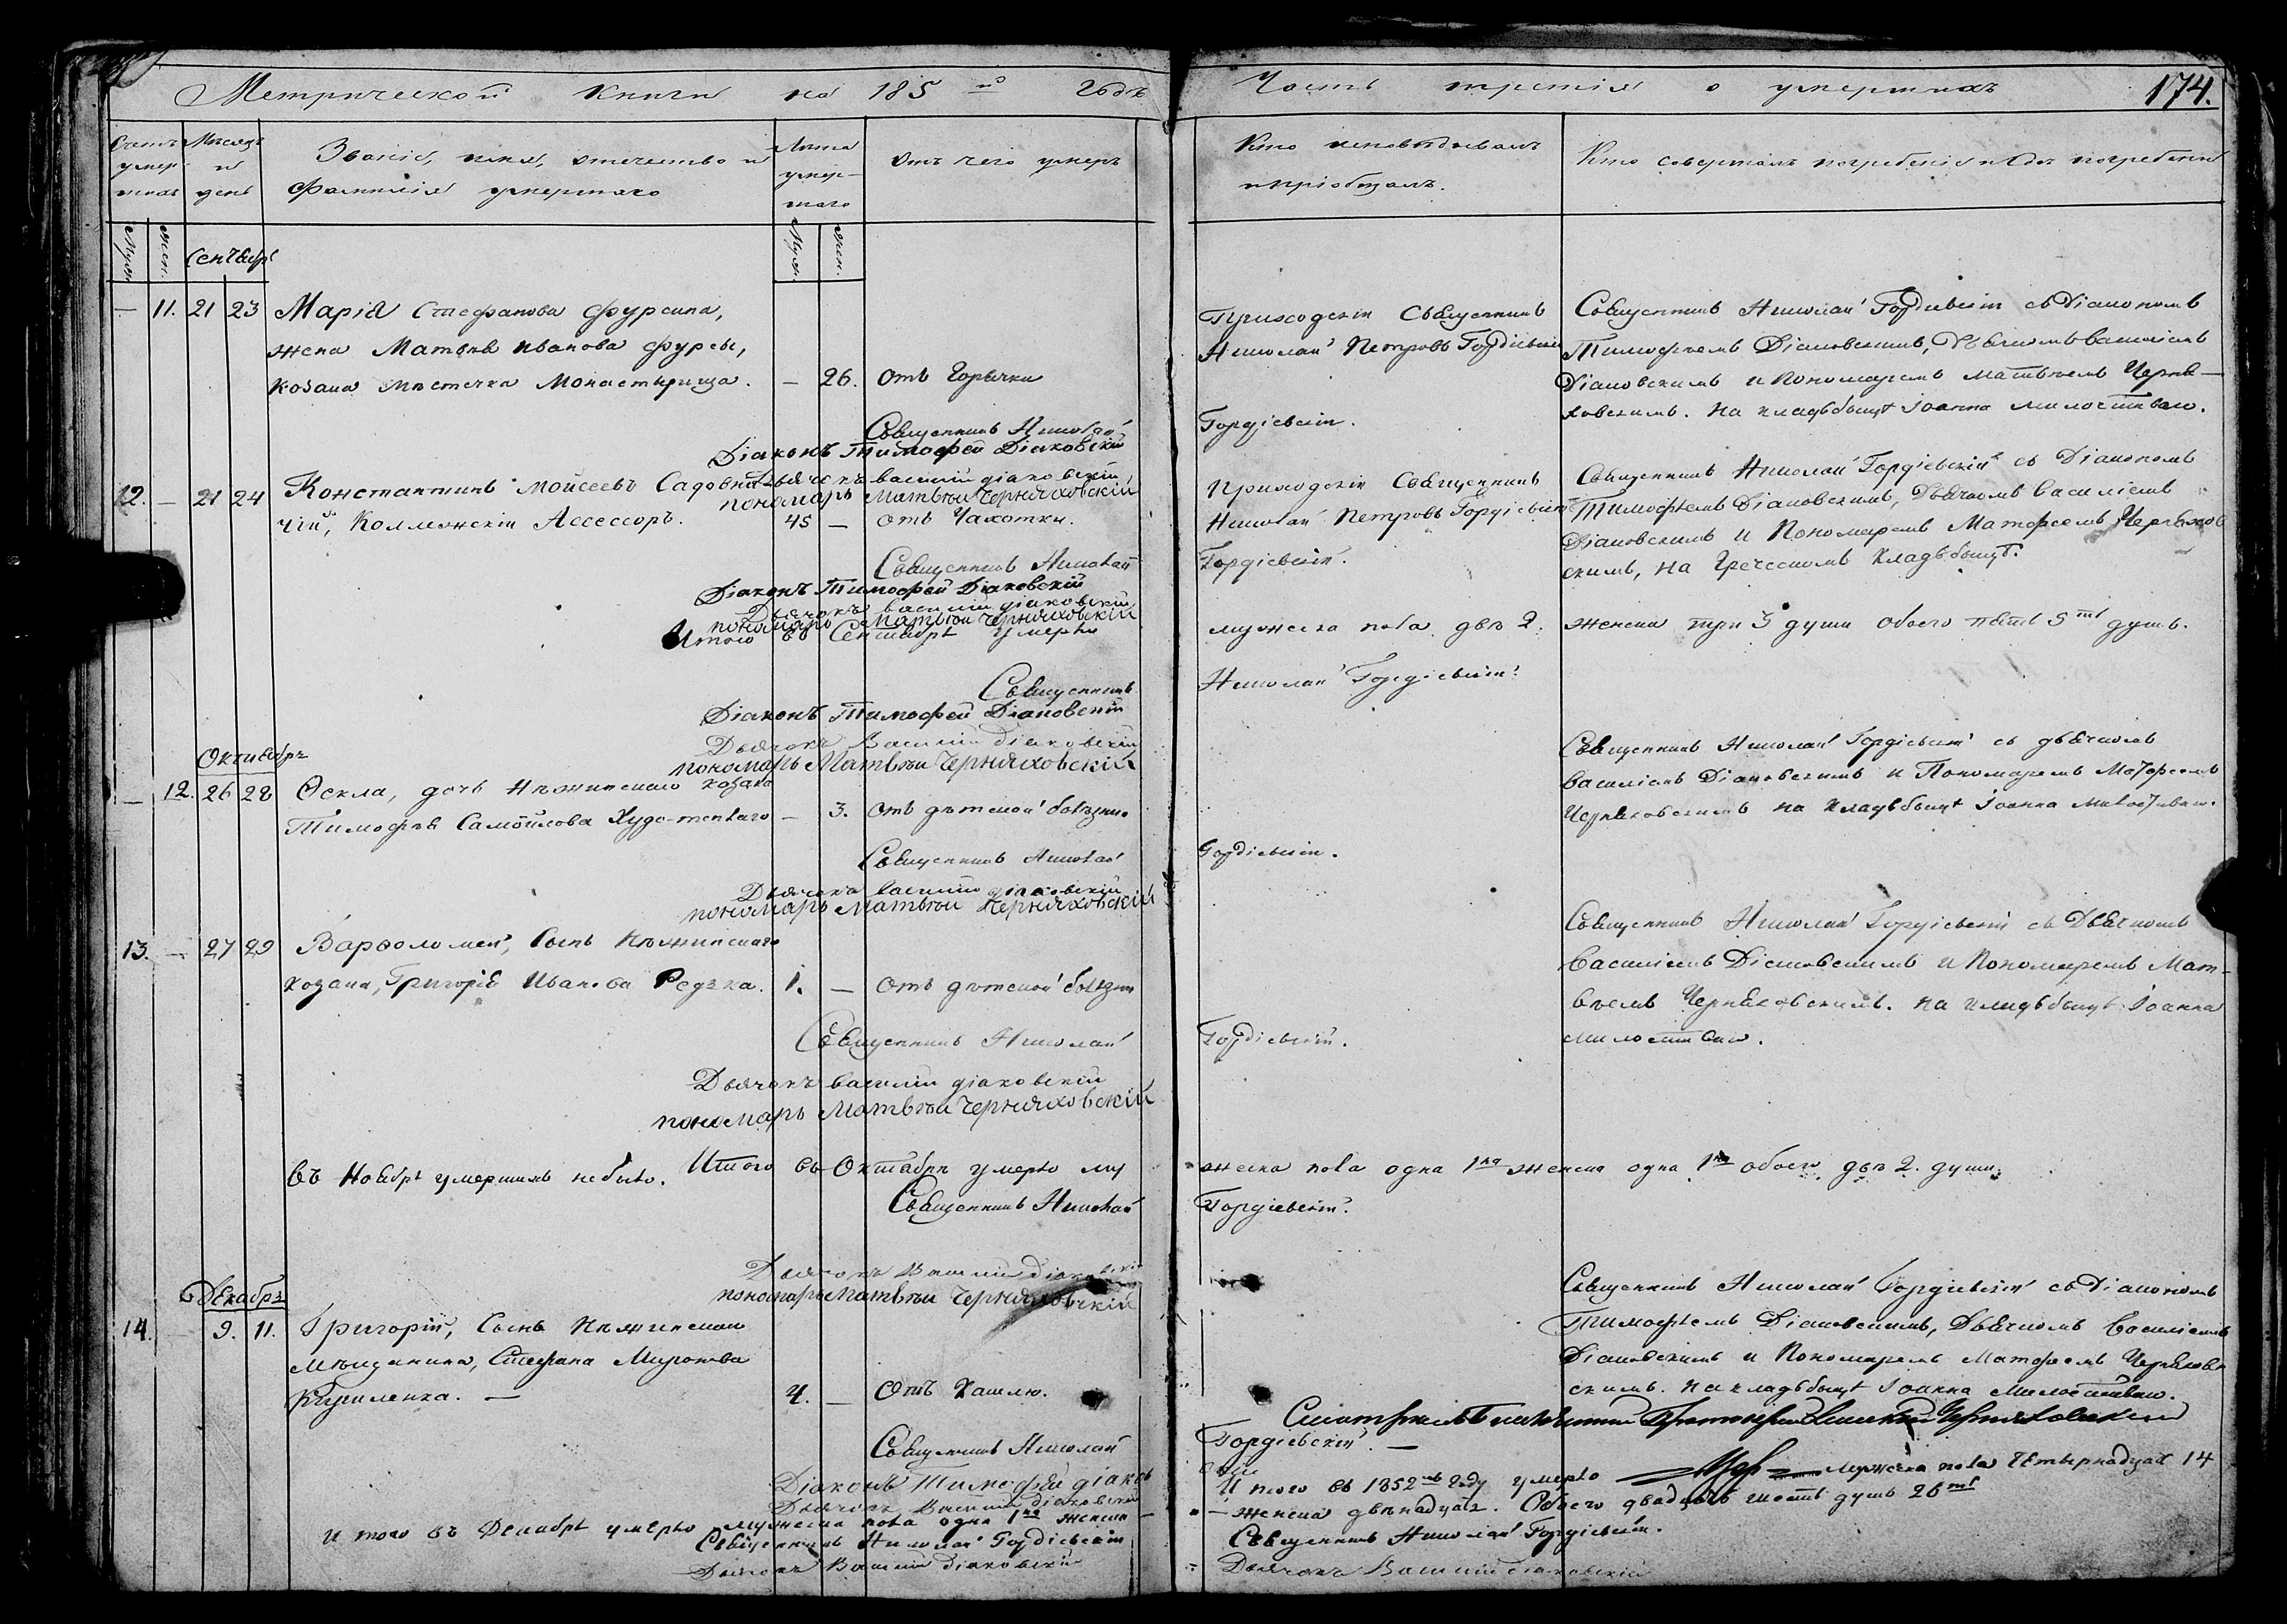 Метрической книги на 185 й годъ
Часть третія о умершихъ 174.
Счетъ умер шихъ
Мѣсяцъ и день
Званіе, имя, отечество и фамилія умершаго
Лѣта умер- шаго
отъ чего умеръ
Кто исповѣдывалъ и пріобщалъ.
Кто совершалъ погребеніе и гдѣ погребены
Муж. Жен.
Муж. Жен.
Сентябрь
— 11. 21 23 Марія Стефанова Фурсина,
жена Матвѣя Иванова Фурсы,
козака мѣстечка Монастырища. — 26. Отъ Горячки
Приходскій Священникъ
Николай Петровъ Гордіевскій
Священникъ Николай Гордіевскій съ Діакономъ
Тимофѣемъ Діаковскимъ, Дьячкомъ Василіемъ
Діаковскимъ и Пономаремъ Матвѣемъ Черня-
ховскимъ. На кладьбищѣ Іоанна Милостиваго.
Священникъ Николай Гордіевскій.
Діаконъ Тимофей Діаковскій
Дьячокъ Василій Діаковскій
пономарь Матвѣй Черняховскій
12. — 21 24 Константинъ Моисеевъ Садовни-
чій, Коллежскій Ассессоръ. 45 — Отъ Чахотки.
Приходскій Священникъ
Николай Петровъ Гордіевскій
Священникъ Николай Гордіевскій съ Діакономъ
Тимофѣемъ Діаковскимъ, Дьячкомъ Василіемъ
Діаковскимъ и Пономаремъ Матфеемъ Черняхов
скимъ, на Греческомъ Кладьбищѣ.
Священникъ Николай Гордіевскій.
Діаконъ Тимофей Діаковскій
Дьячокъ Василій Діаковскій
пономарь Матвѣй Черняховскій
Итого въ Сентябрѣ умерло мужеска пола двѣ 2. женска три 3 души обоего пять 5ть душъ.
Священникъ Николай Гордіевскій.
Діаконъ Тимофей Діаковскій
Дьячокъ Василій Діаковскій
пономарь Матвѣй Черняховскій
Октябрь
— 12. 26 28 Ѳекла, дочь Нѣжинскаго козака
Тимофея Самойлова Худо- — 3. Отъ дѣтской болѣзни.
Священникъ Николай Гордіевскій съ дьячкомъ
Василіемъ Діаковскимъ и Пономаремъ Матфеемъ
Черняховскимъ на кладьбищѣ Іоанна Милостиваго.
Священникъ Николай Гордіевскій.
Дьячокъ Василій Діаковскій
пономарь Матвѣй Черняховскій
13. — 27 29 Варѳоломей, Сынъ Нѣжинскаго
козака, Григорія Иванова Редька. 1. — Отъ дѣтской болѣзни
Священникъ Николай Гордіевскій съ Дьячкомъ
Василіемъ Діаковскимъ и Пономаремъ Мат-
вѣемъ Черняховскимъ. На кладьбищѣ Іоанна
Милостиваго.
Священникъ Николай Гордіевскій.
Дьячокъ Василій Діаковскій
пономарь Матвѣй Черняховскій
Итого въ Октябрѣ умерло му жеска пола одна 1на женска одна 1на обоего двѣ 2. души.
въ Ноябрѣ умершихъ небыло.
Священникъ Николай Гордіевскій.
Дьячокъ Василій Діаковскій
пономарь Матвѣй Черняховскій
Декабрь
14. 9. 11. Григорій, Сынъ Нѣжинскаго
мѣщанина, Стефана Миронова
Кириленка. — 4. — Отъ Кашлю.
Священникъ Николай Гордіевскій съ Діакономъ
Тимофѣемъ Діаковскимъ, Дьячкомъ Василіемъ
Діаковскимъ и Пономаремъ Матфеемъ Черняхов
скимъ. На кладьбищѣ Іоанна Милостиваго.
Священникъ Николай Гордіевскій. —
Діаконъ Тимофей Діаков
Дьячокъ Василій Діаковскій
Итого въ Декабрѣ умерло мужеска пола одна 1на женска —
Священникъ Николай Гордіевскій
Дьячокъ Василій Діаковскій
Итого въ 1852мъ Году умерло мужеска пола Четырнадцать 14
— женска двѣнадцать. Обоего двадцать шесть душъ 26ть
Священникъ Николай Гордіевскій.
Дьячокъ Василій Діаковскій